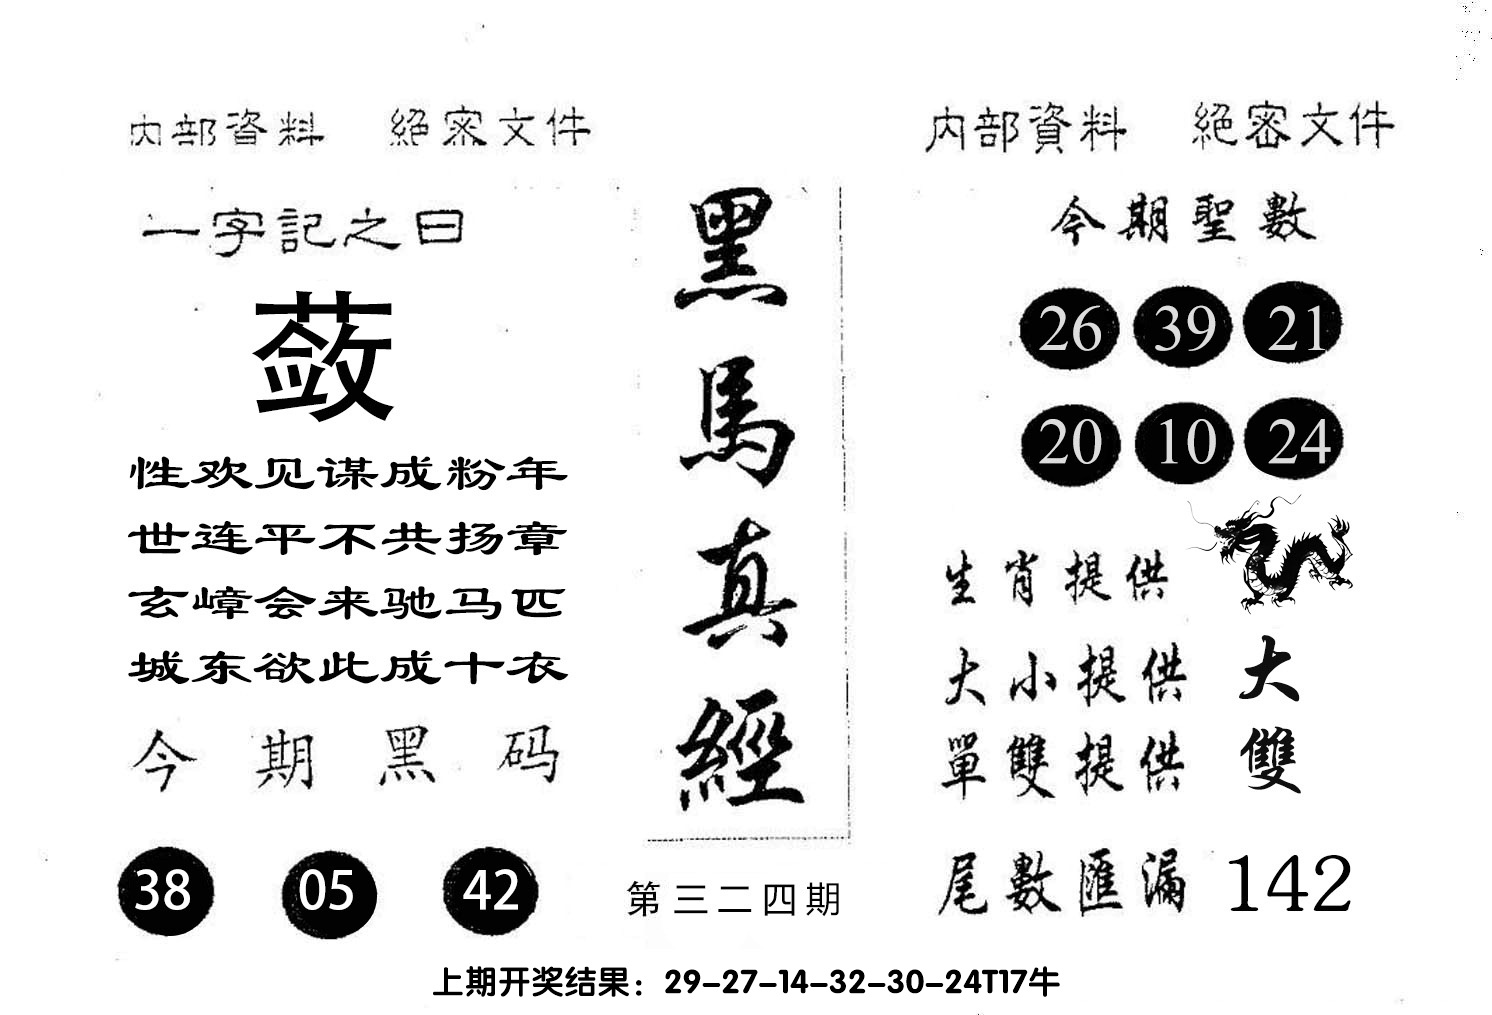 内部資料 絕密文件
一字記之曰
蔹
性欢见谋成粉年
世连平不共扬章
玄嶂会来驰马匹
城东欲此成十衣
今期黑码
38 05 42
黑馬真經
第三二四期
内部資料 絕密文件
今期聖數
26 39 21
20 10 24
生肖提供
大小提供 大
單雙提供 雙
尾數匯漏 142
上期开奖结果：29-27-14-32-30-24T17牛